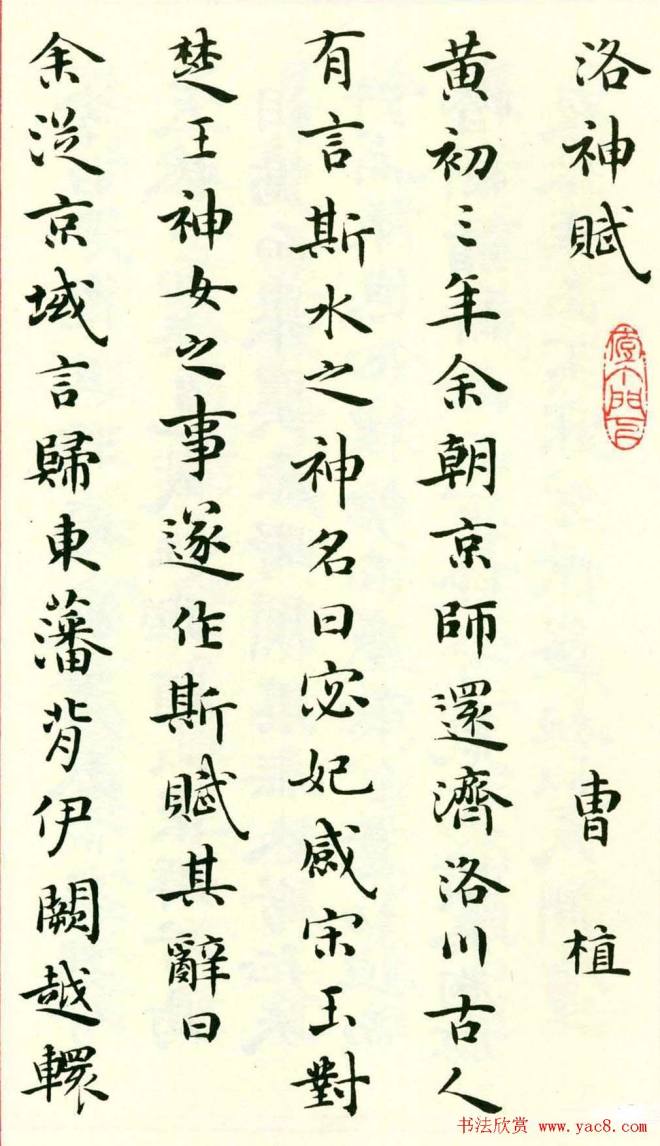 洛神賦 曹植
黄初三年余朝京師還濟洛川古人
有言斯水之神名曰宓妃感宋玉對
楚王神女之事遂作斯賦其辭曰
余從京域言歸東藩背伊闕越轘
书法欣赏 www.yac8.com